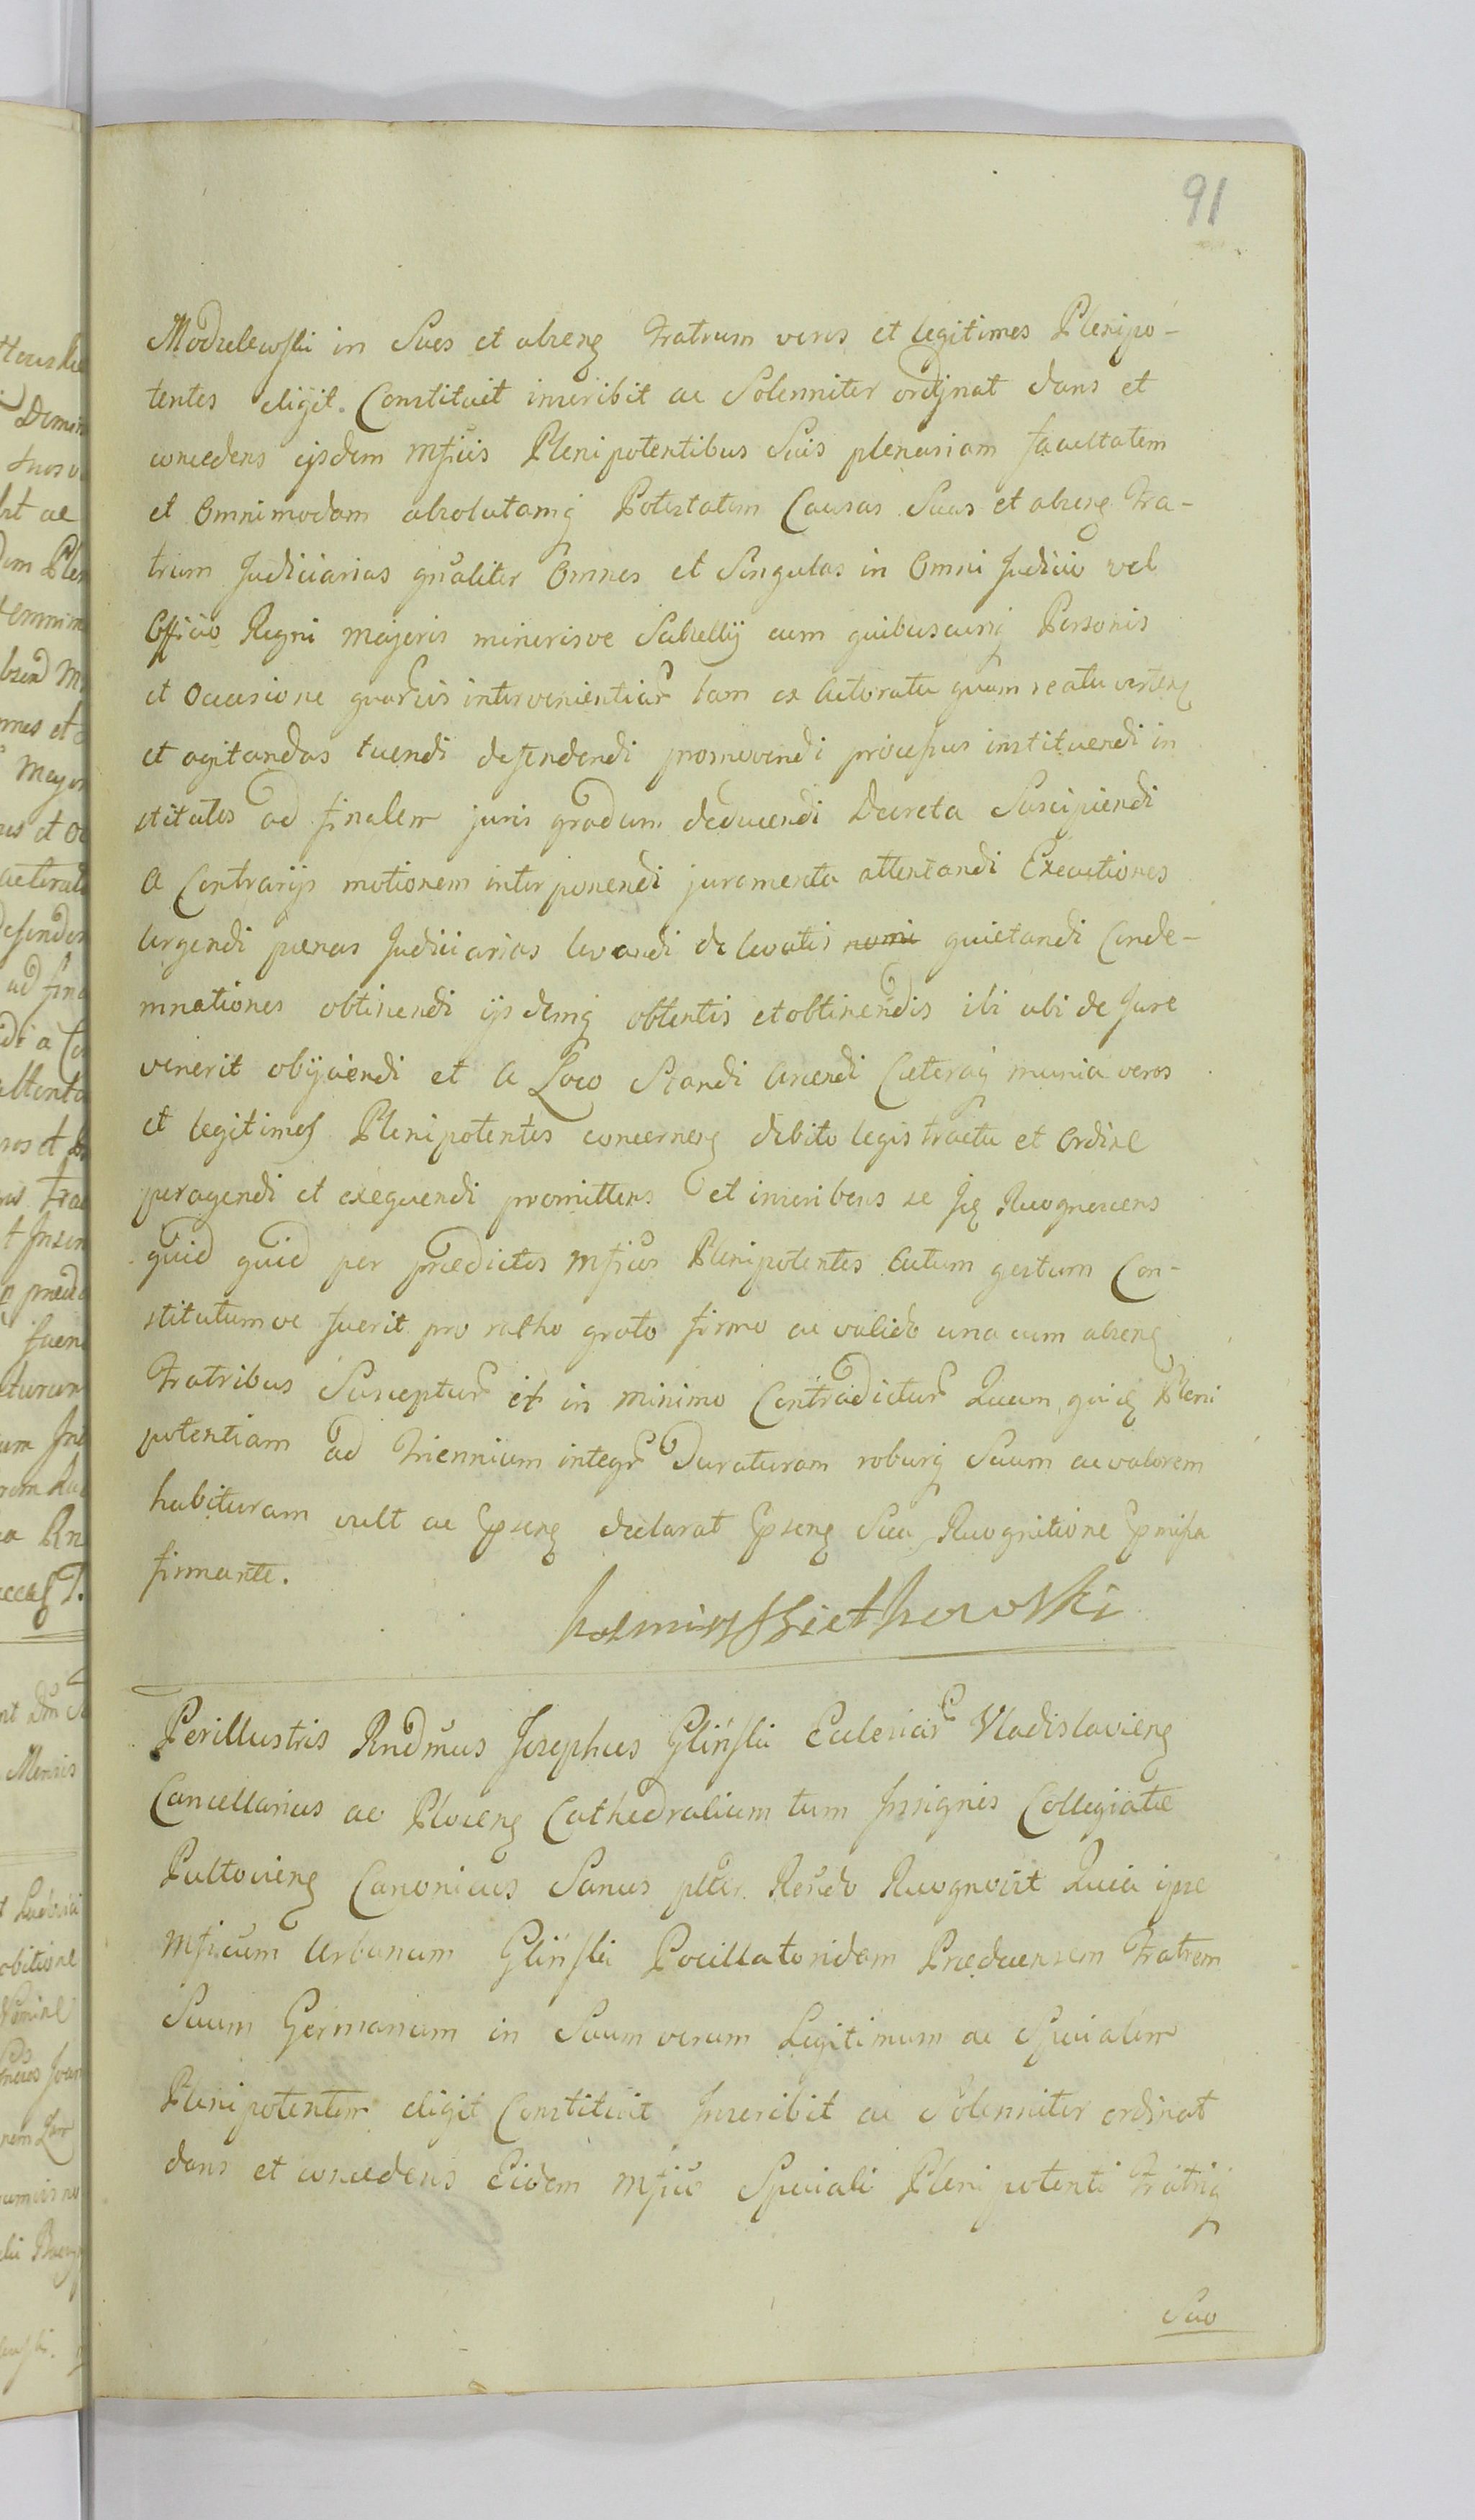 91
Modzelewski in Suos et absenẽ Fratrum veros et legitimos Plenipo-
tentes eligit. Constituit inscribit ac Solenniter ordinat dans et
concedens ijsdem Mficis Plenipotentibus Suis plenariam facultatem
et Omnimodam absolutamq Potestatem Causas Suas et absenẽ Fra-
trum Judiciarias gnaliter Omnes et Singulas in Omni Judicio vel
Officio Regni Majoris minorisve Subsellij cum quibuscunq Personis
et Occasione quarũvis intervenientiũ tam ex Actoratu quam reatu vertenẽ
et agitandas tuendi defendendi promovendi processus instituendi in
stitutos ad finalem juris gradum deducendi Decreta Suscipiendi
A Contrarijs motionem interponendi juramenta attentandi Executiones
Urgendi pænas Judiciarias levandi de levatis quietandi Conde-
mnationes obtinendi ijsdemq obtentis et obtinendis ibi ubi de Jure
venerit obijciendi et A Loco Standi Arcendi Cæteraq munia veros
et legitimos Plenipotentes concernenẽ debito legis tractu et Ordine
peragendi et exequendi promittens et inscribens se Jẽ Recognoscens
quid quid per prædictos Mficos Plenipotentes Actum gestum Con-
stitutumve fuerit pro ratho grato firmo ac valido una cum absenẽ
Fratribus Suscepturũ et in minimo Contradicturũ Quam quidẽ Pleni
potentiam ad Triennium integrũ Duraturam roburq Suum ac valorem
habituram vult ac Ipsenẽ declarat Ipsenẽ Sua Recognitione Ipmissa
firmante.
Perillustris Rndmus Josephus Gliński Ecclesiarũ Vladislavienẽ
Cancellarius ac Plocenẽ Cathedralium tum Insignis Collegiatæ
Pultovienẽ Canonicus Sanus ptter Rendo Recognovit Quia ipse
Mficum Urbanum Gliński Pocillatoridam Prædecensem Fratrem
Suum Germanum in Suum verum Legitimum ac Specialem
Plenipotentem eligit Constituit Inscribit ac Solenniter ordinat
dans et concedens Eidem Mfico Speciali Plenipotenti Fratriq
Suo